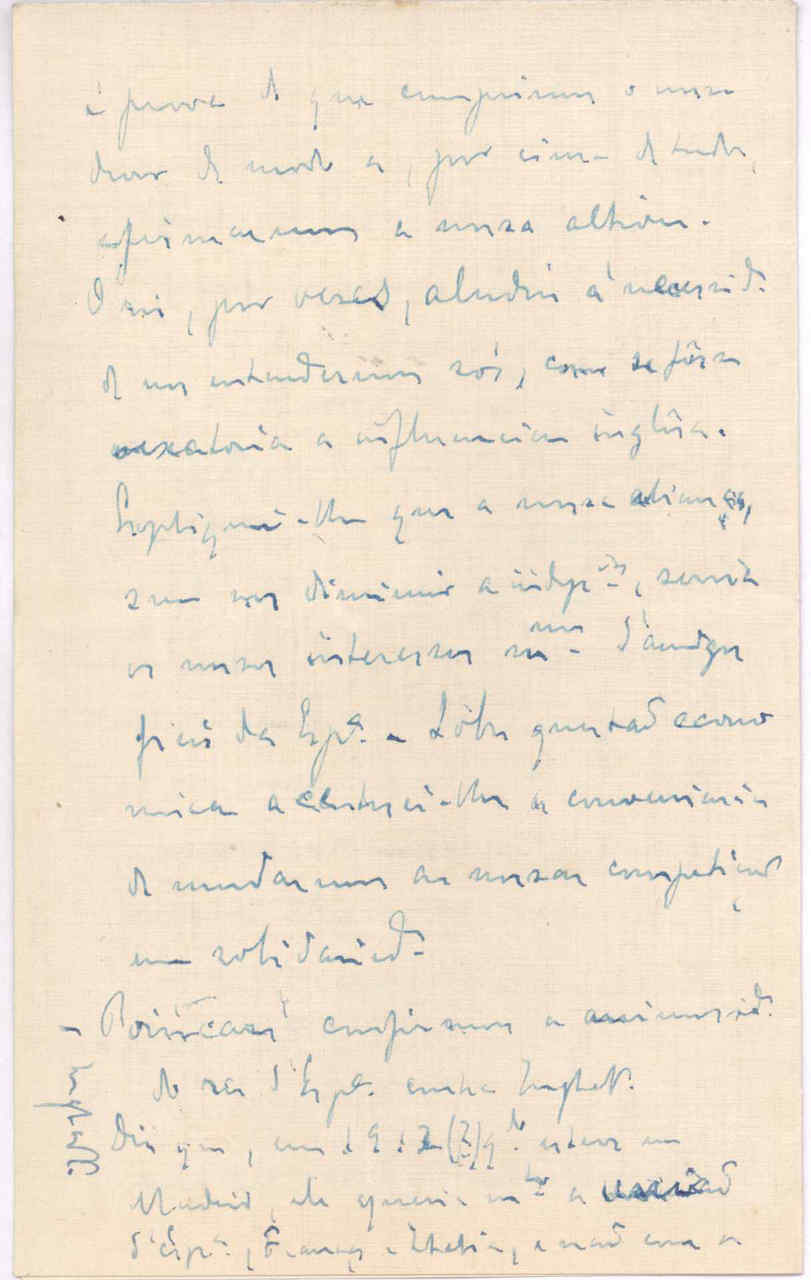 a prova de que cumprimos o nosso
dever de modo a, por cima de tudo,
afirmarmos a nossa altivez.
O rei, por vezes, aludiu á necessid.e
de nos entendermos sós, como se fôsse
vexatoria a influencia inglêsa.
Expliquei-lhe que a nossa aliança,
sem nos diminuir a indep.cia, servia
os nossos interesses sem d'amigos
fieis da Esp.a - Sôbre questão econo
mica accentuei-lhe a conveniencia
de mudarmos as nossas competições
em solidaried.e
- Poincaré confirmou a animosid.e
do rei d'Esp.a contra Inglat.a
Diz que, em 1913 (?) q.do esteve em
Madrid, ele queria a união
d'Esp.a, França e Italia, e não com a